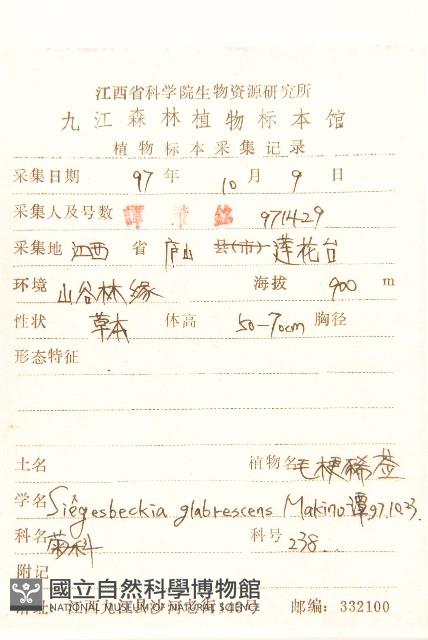 江西省科学院生物资源研究所
九江森林植物标本馆
植物标本采集记录
采集日期 97 年 10 月 9 日
采集人及号数 譚策銘 971429
采集地 江西 省 庐山 县(市) 莲花台
环境 山谷林缘 海拔 900 m
性状 草本 体高 50-70cm 胸径
形态特征
土名 植物名 毛梗豨莶
学名 Siegesbeckia glabrescens Makino 谭97.10.23.
科名 菊科 科号 238
附记
國立自然科學博物館
NATIONAL MUSEUM OF NATURAL HISTORY
江西九江县沙河老街 号 邮编:332100